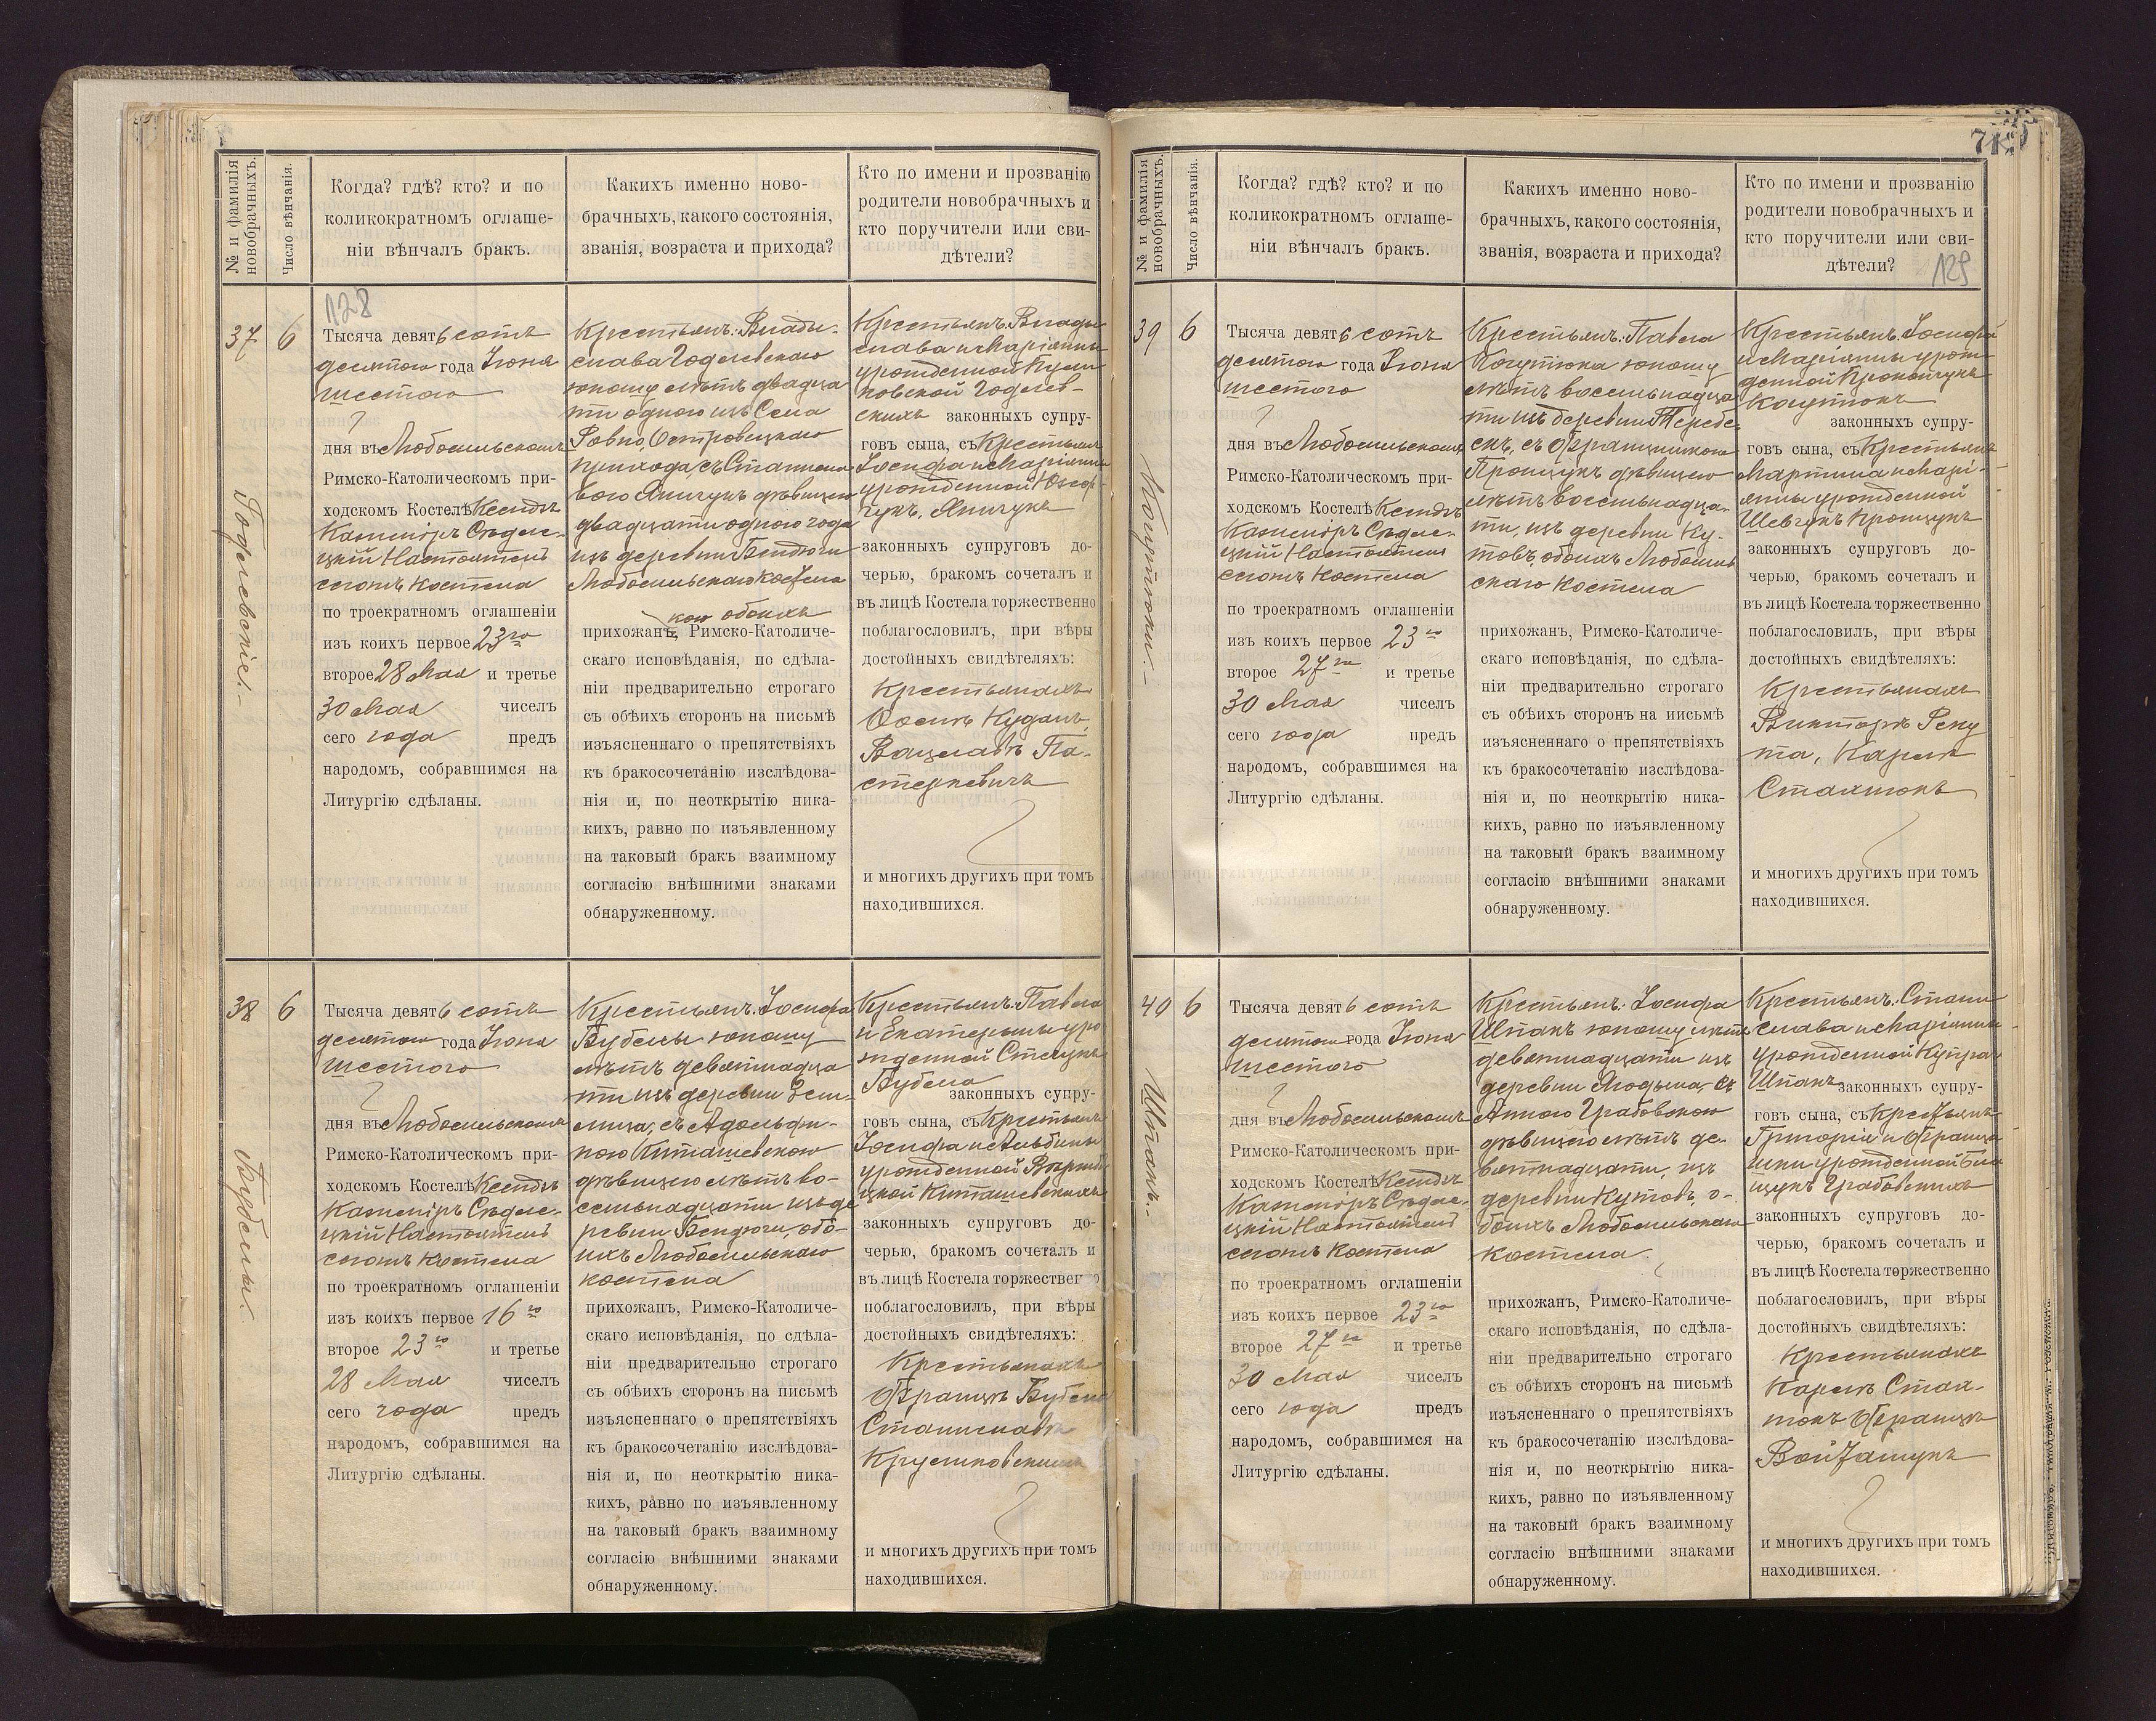 № и фамилія новобрачныхъ.
Число вѣнчанія.
Когда? гдѣ? кто? и по
коликократномъ оглаше-
ніи вѣнчалъ бракъ.
Какихъ именно ново-
брачныхъ, какого состоянія,
званія, возраста и прихода?
Кто по имени и прозванію
родители новобрачныхъ и
кто поручители или сви-
дѣтели?
128
37
6
Годлевскіе.
Тысяча девятьсотъ
десятого года Іюня
шестого
дня въ Любомльскомъ
Римско-Католическомъ при-
ходскомъ Костелѣ Ксендзъ
Казиміръ Сѣдле-
цкій Настоятель
сегожъ Костела
по троекратномъ оглашеніи
изъ коихъ первое 23го
второе 28 Мая и третье
30 Мая чиселъ
сего года предъ
народомъ, собравшимся на
Литургію сдѣланы.
Крестьянъ: Влади-
слава Годлевскаго
юношу лѣтъ двадца
ти одного изъ Села
Ровно, Островецкаго
прихода, съ Станисла-
вою Яничукъ дѣвицею
двадцати одного года
изъ деревни Бендюги
Любомльскаго костела
кои обоихъ
прихожанъ, Римско-Католиче-
скаго исповѣданія, по сдѣла-
ніи предварительно строгаго
съ обѣихъ сторонъ на письмѣ
изъясненнаго о препятствіяхъ
къ бракосочетанію изслѣдова-
нія и, по неоткрытію ника-
кихъ, равно по изъявленному
на таковый бракъ взаимному
согласію внѣшними знаками
обнаруженному.
Крестьянъ: Влади
слава и Маріанны
урожденной
Годлев-
скихъ законныхъ супру-
говъ сына, съ Крестьянъ
Іосифа и Маріанны
урожденной
Яничукъ
законныхъ супруговъ до-
черью, бракомъ сочеталъ и
въ лицѣ Костела торжественно
поблагословилъ, при вѣры
достойныхъ свидѣтеляхъ:
Крестьянахъ
Осипъ Куданъ,
Вацлавъ Па-
стеркевичъ
и многихъ другихъ при томъ
находившихся.
38
6
Бубелы.
Тысяча девятьсотъ
десятого года Іюня
шестого
дня въ Любомльскомъ
Римско-Католическомъ при-
ходскомъ Костелѣ Ксендзъ
Казиміръ Сѣдле-
цкій Настоятель
сегожъ Костела
по троекратномъ оглашеніи
изъ коихъ первое 16го
второе 23го и третье
28 Мая чиселъ
сего года предъ
народомъ, собравшимся на
Литургію сдѣланы.
Крестьянъ: Іосифа
Бубелы юношу
лѣтъ девятнадца
ти изъ деревни Зем-
лица, съ Адольфи-
ною Киташевскою
дѣвицею лѣтъ во-
семьнадцати изъ де
ревни Бендюги, обо-
ихъ Любомльскаго
костела
прихожанъ, Римско-Католиче-
скаго исповѣданія, по сдѣла-
ніи предварительно строгаго
съ обѣихъ сторонъ на письмѣ
изъясненнаго о препятствіяхъ
къ бракосочетанію изслѣдова-
нія и, по неоткрытію ника-
кихъ, равно по изъявленному
на таковый бракъ взаимному
согласію внѣшними знаками
обнаруженному.
Крестьянъ: Павла
и Екатерины уро
жденной Стецукъ
Бубела
законныхъ супру-
говъ сына, съ Крестьянъ
Іосифа и Альбины
урожденной
Киташевскихъ
законныхъ супруговъ до-
черью, бракомъ сочеталъ и
въ лицѣ Костела торжественно
поблагословилъ, при вѣры
достойныхъ свидѣтеляхъ:
Крестьянахъ
Францъ Бубела
Станиславъ
Круликовскимъ
и многихъ другихъ при томъ
находившихся.
№ и фамилія новобрачныхъ.
Число вѣнчанія.
Когда? гдѣ? кто? и по
коликократномъ оглаше-
ніи вѣнчалъ бракъ.
Какихъ именно ново-
брачныхъ, какого состоянія,
званія, возраста и прихода?
Кто по имени и прозванію
родители новобрачныхъ и
кто поручители или сви-
дѣтели?
129
39
6
Когутюки.
Тысяча девятьсотъ
десятого года Іюня
шестого
дня въ Любомльскомъ
Римско-Католическомъ при-
ходскомъ Костелѣ Ксендзъ
Казиміръ Сѣдле-
цкій Настоятель
сегожъ Костела
по троекратномъ оглашеніи
изъ коихъ первое 23го
второе 27го и третье
30 Мая чиселъ
сего года предъ
народомъ, собравшимся на
Литургію сдѣланы.
Крестьянъ: Павла
Когутюка юношу
лѣтъ восемьнадца
ти изъ деревни Теребе-
скъ, съ Францишкою
Прокцукъ дѣвицею
лѣтъ восемьнадца-
ти, изъ деревни Ку-
товъ, обоихъ Любомль
скаго Костела
прихожанъ, Римско-Католиче-
скаго исповѣданія, по сдѣла-
ніи предварительно строгаго
съ обѣихъ сторонъ на письмѣ
изъясненнаго о препятствіяхъ
къ бракосочетанію изслѣдова-
нія и, по неоткрытію ника-
кихъ, равно по изъявленному
на таковый бракъ взаимному
согласію внѣшними знаками
обнаруженному.
Крестьянъ: Іосифа
и Маріанны урож
денной
Когутюкъ
законныхъ супру-
говъ сына, съ Крестьянъ
Мартина и Марі-
анны урожденной
Шевчукъ
законныхъ супруговъ до-
черью, бракомъ сочеталъ и
въ лицѣ Костела торжественно
поблагословилъ, при вѣры
достойныхъ свидѣтеляхъ:
Крестьянахъ
Викторъ Реку
та, Карлъ
Стахнюкъ
и многихъ другихъ при томъ
находившихся.
40
6
Шпакъ.
Тысяча девятьсотъ
десятого года Іюня
шестого
дня въ Любомльскомъ
Римско-Католическомъ при-
ходскомъ Костелѣ Ксендзъ
Казиміръ Сѣдле-
цкій Настоятель
сегожъ Костела
по троекратномъ оглашеніи
изъ коихъ первое 23го
второе 27го и третье
30 Мая чиселъ
сего года предъ
народомъ, собравшимся на
Литургію сдѣланы.
Крестьянъ: Іосифа
Шпакъ юношу лѣтъ
девятнадцати изъ
деревни Ягодына, съ
Анною Грабовскою
дѣвицею лѣтъ де-
вятнадцати, изъ
деревни Кутовъ, о-
боихъ Любомльскаго
костела
прихожанъ, Римско-Католиче-
скаго исповѣданія, по сдѣла-
ніи предварительно строгаго
съ обѣихъ сторонъ на письмѣ
изъясненнаго о препятствіяхъ
къ бракосочетанію изслѣдова-
нія и, по неоткрытію ника-
кихъ, равно по изъявленному
на таковый бракъ взаимному
согласію внѣшними знаками
обнаруженному.
Крестьянъ: Стани
слава и Маріанны
урожденной
Шпакъ законныхъ супру-
говъ сына, съ Крестьянъ
Григорія и Францы
шки урожденной
Грабовскихъ
законныхъ супруговъ до-
черью, бракомъ сочеталъ и
въ лицѣ Костела торжественно
поблагословилъ, при вѣры
достойныхъ свидѣтеляхъ:
Крестьянахъ
Карлъ Стах-
нюкъ Францъ
Войташукъ
и многихъ другихъ при томъ
находившихся.